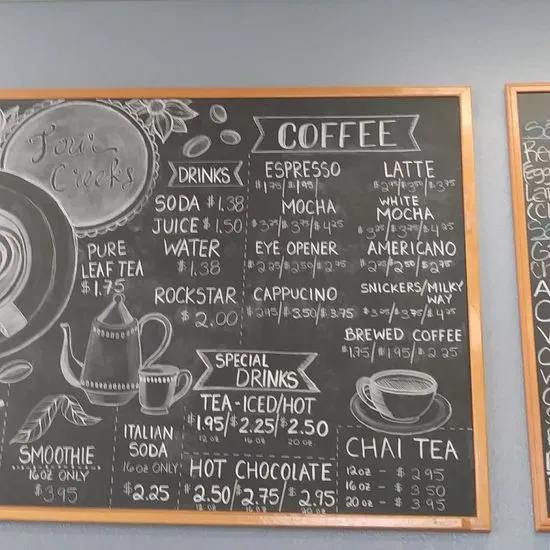 Four
Creeks
DRINKS
SODA $1.38
JUICE $1.50
WATER
$1.38
ROCKSTAR
$2.00
PURE
LEAF TEA
$1.75
COFFEE
ESPRESSO
$1.75/$1.95/
LATTE
$2.95/$3.50/$3.75
MOCHA
$3.25/$3.75/$4.25
WHITE
MOCHA
$3.25/$3.75/$4.25
EYE OPENER
$2.25/$2.50/$2.75
AMERICANO
$2.25/$2.50/$2.75
CAPPUCINO
$2.95/$3.50/$3.75
SNICKERS/MILKY
WAY
$3.25/$3.75/$4.25
BREWED COFFEE
$1.75/$1.95/$2.25
SPECIAL
DRINKS
TEA-ICED/HOT
$1.95/$2.25/$2.50
12 oz 16 oz 20 oz
SMOOTHIE
16oz ONLY
$3.95
ITALIAN
SODA
16oz ONLY
$2.25
HOT CHOCOLATE
$2.50/$2.75/$2.95
12 oz 16 oz 20 oz
CHAI TEA
12oz - $2.95
16 oz - $3.50
20 oz - $3.95